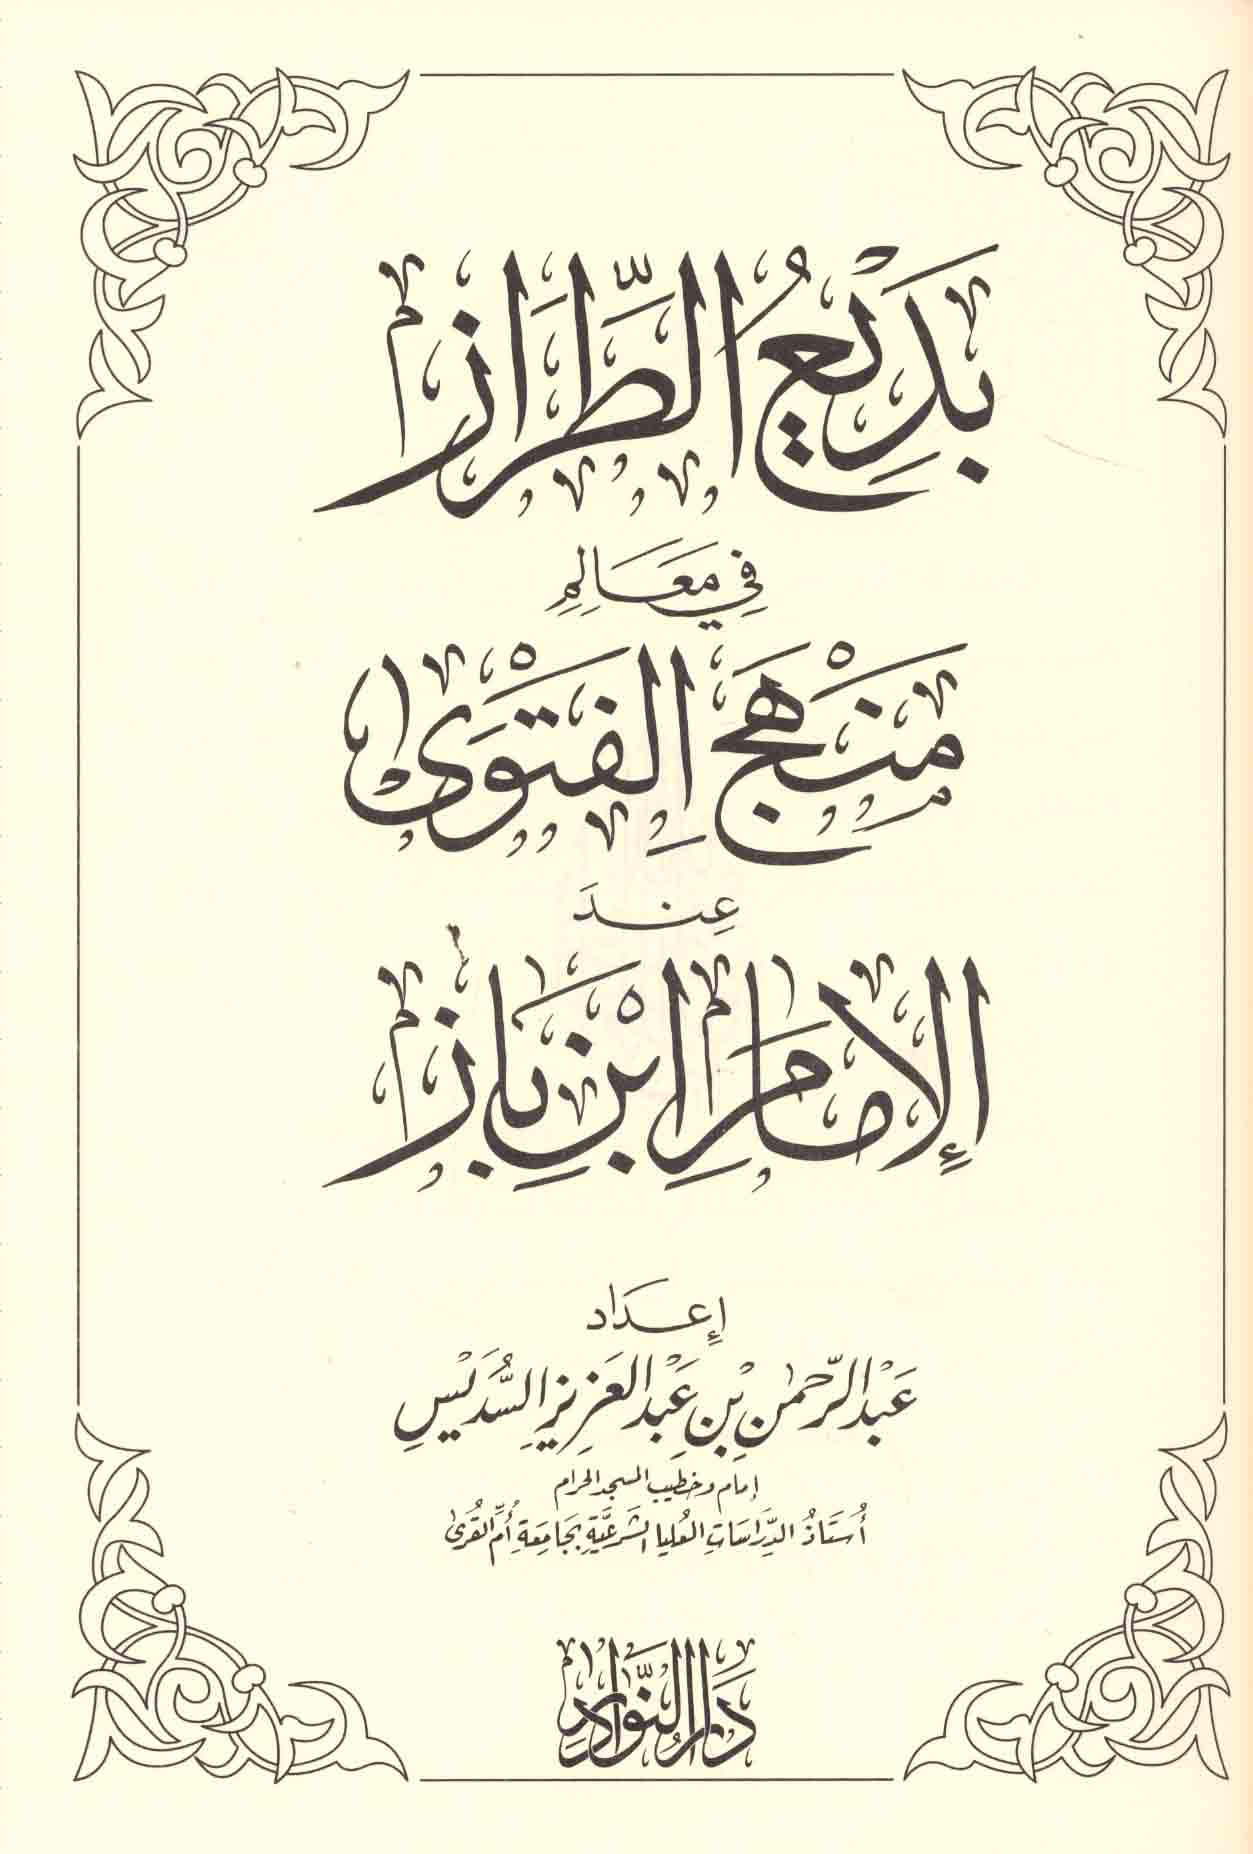 بَدِيعُ الطِّرَازِ
فِي مَعَالِمِ
مَنْهَجِ الفَتْوَى
عِندَ
الإِمَامِ ابْنِ بَازٍ
إِعْدَاد
عَبْد الرَّحمٰن بْن عَبْد العَزِيزِ السُّدَيْسِ
إمام وخطيب المسجد الحرام
أُسْتَاذُ الدِّرَاسَاتِ العُليا الشَّرعيَّةِ بجَامِعَةِ أُمِّ القُرَى
دَارُ النَّوَادِرِ